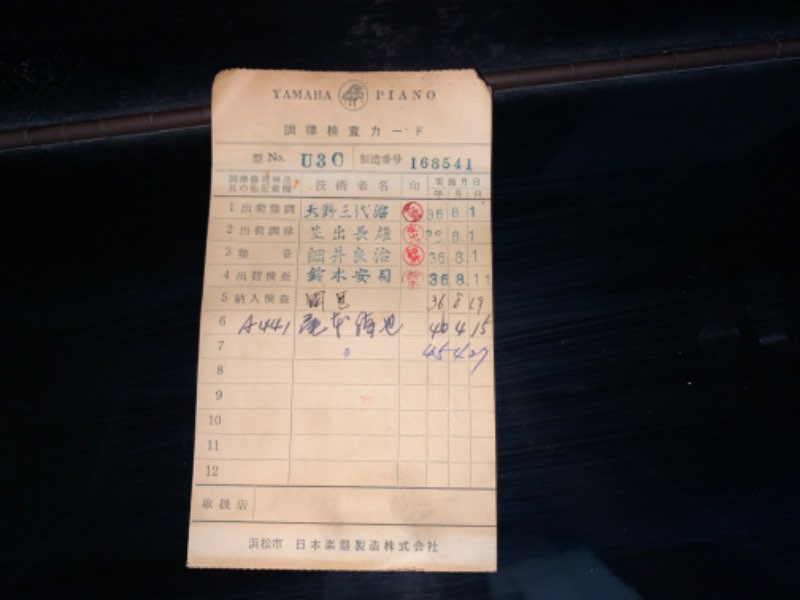 YAMAHA PIANO
調律検査カード
型 No. U3C 製造番号 168541
技術者名 印 実施月日
年 月 日
1 出荷整調 天野三代治 36 8 1
2 出荷調律 生出長雄 36.8.1
3 整音 細井良治 36.8.1
4 出荷検査 鈴木安司 36.8.11
5 納入検査 36 8 19
6 A441 40 4 15
7 〃 45 4 27
8
9
10
11
12
取扱店
浜松市 日本楽器製造株式会社